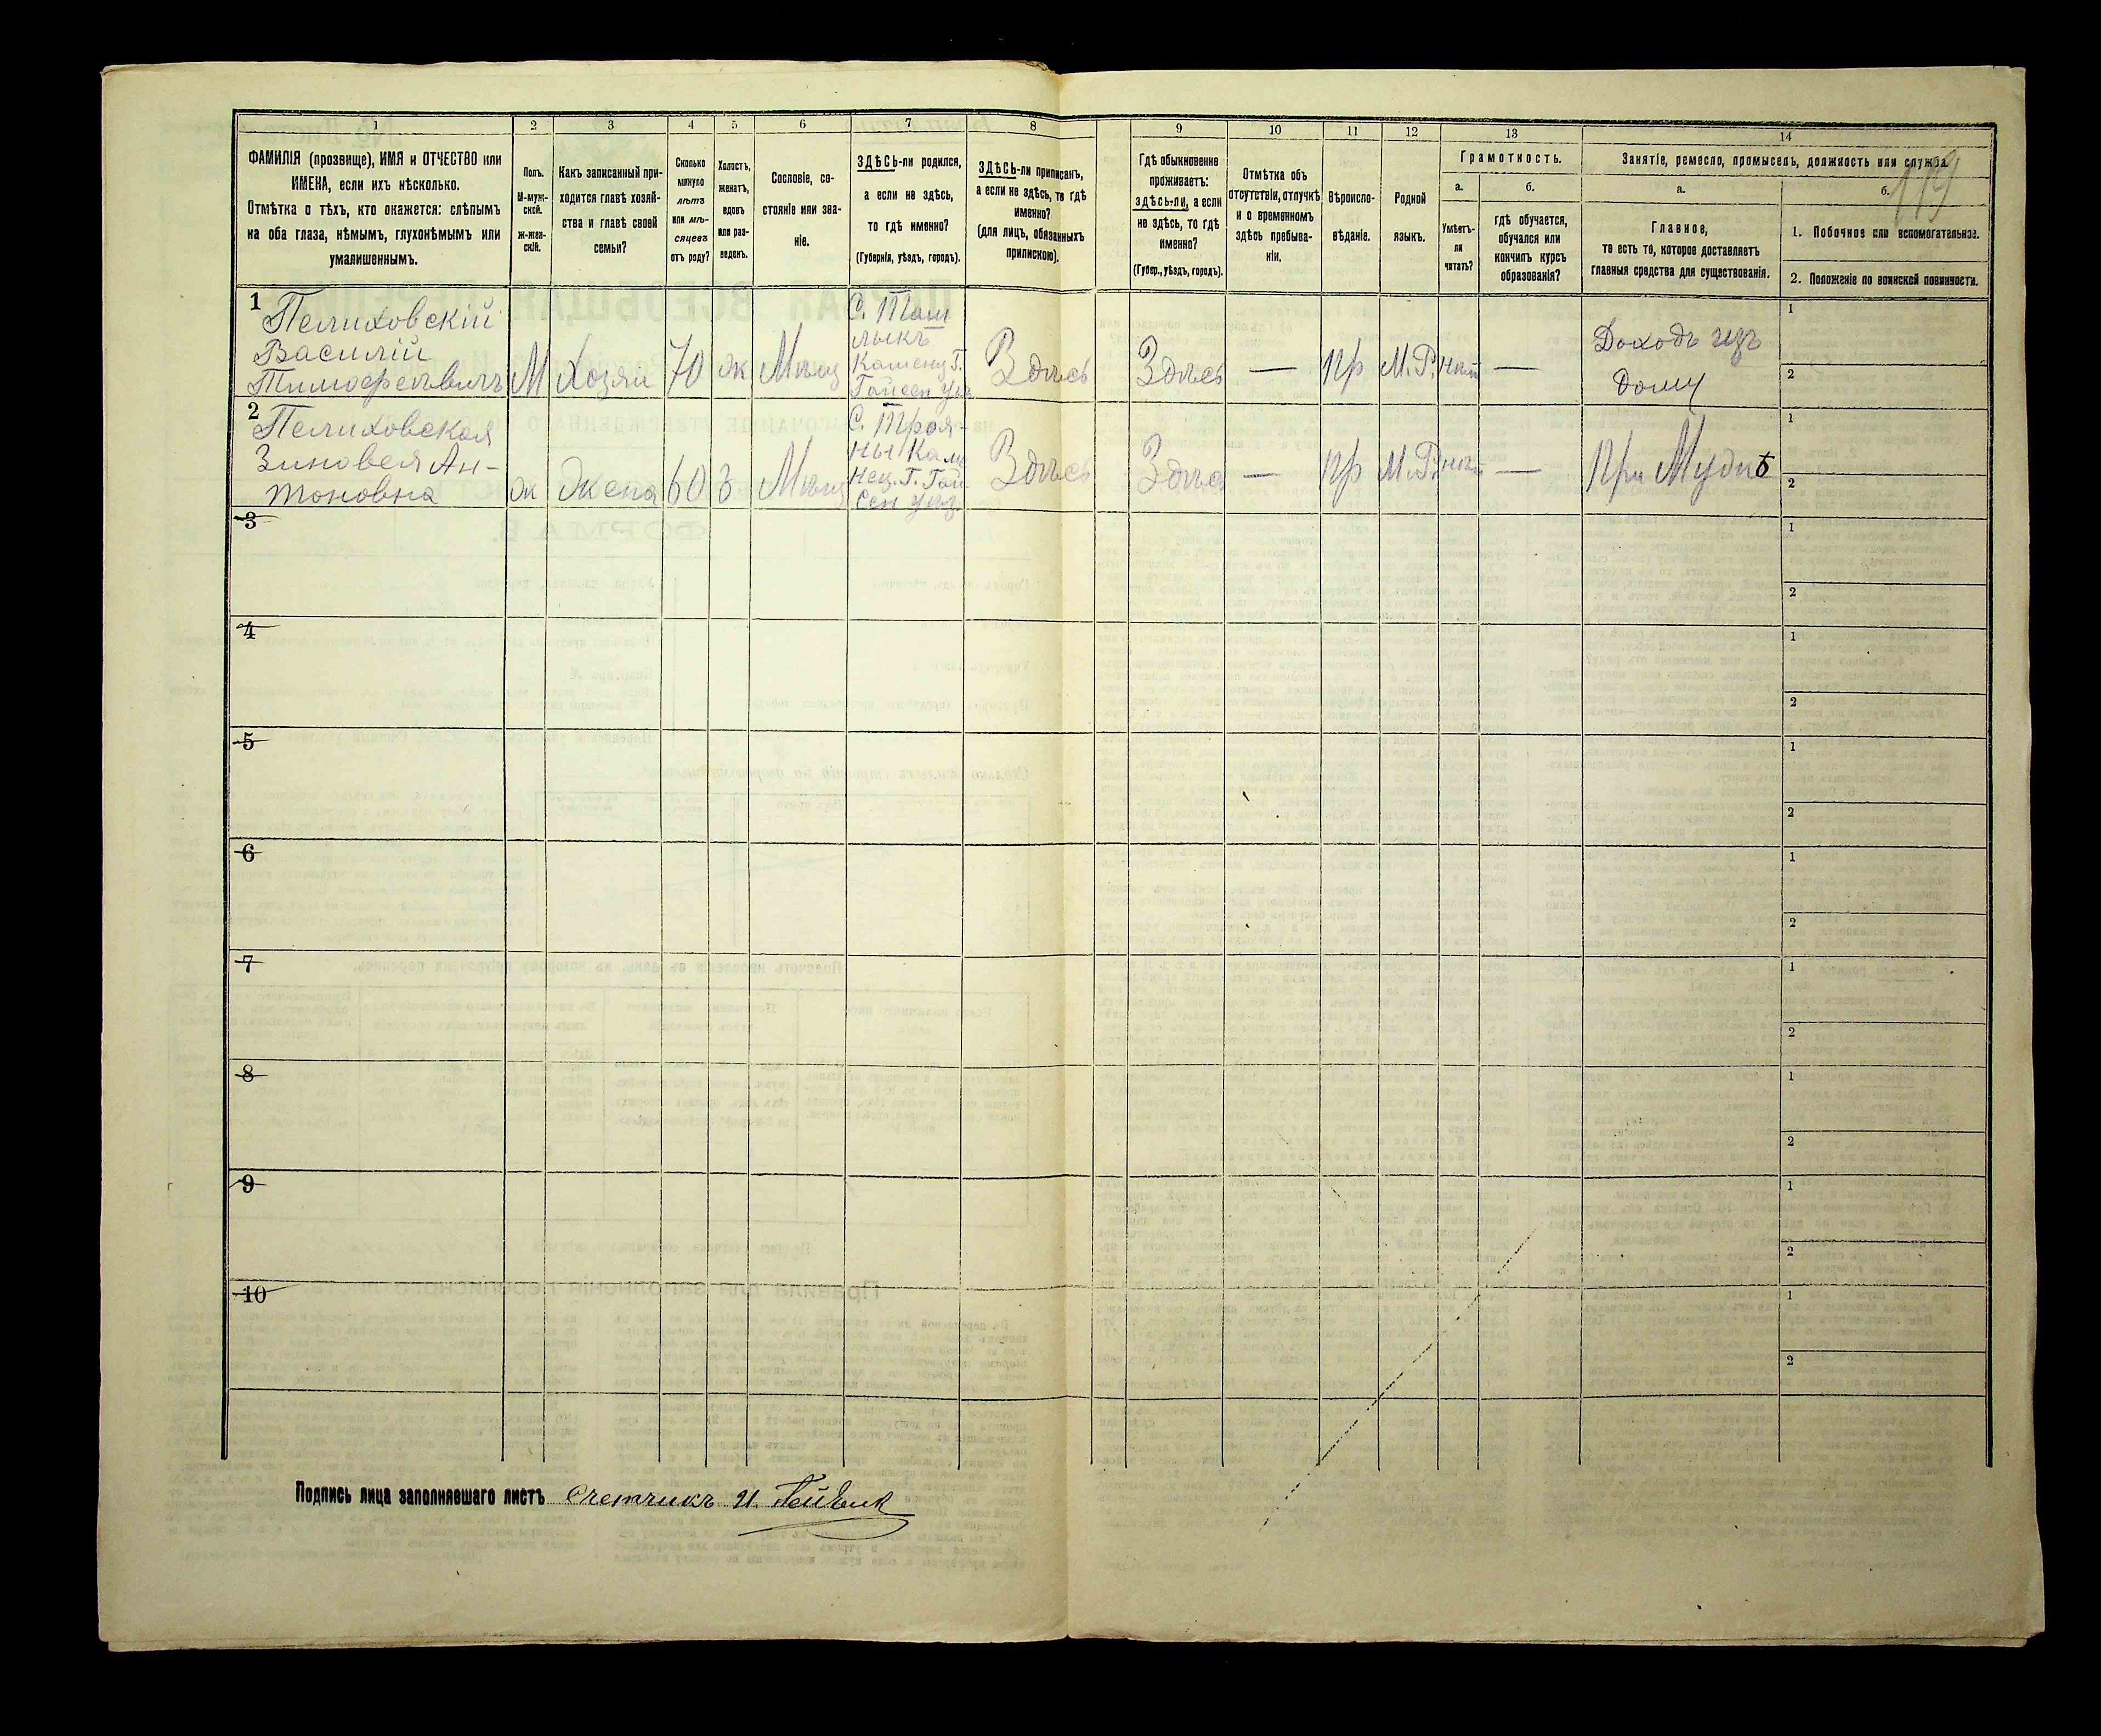 1 2 3 4 5 6 7 8 9 10 11 12 13 14
ФАМИЛІЯ (прозвище), ИМЯ и ОТЧЕСТВО или
ИМЕНА, если ихъ нѣсколько.
Отмѣтка о тѣхъ, кто окажется: слѣпымъ
на оба глаза, нѣмымъ, глухонѣмымъ или
умалишеннымъ.
Полъ.
М-муж-
ской.
ж-жен-
скій.
Какъ записанный при-
ходится главѣ хозяй-
ства и главѣ своей
семьи?
Сколько
минуло
лѣтъ
или мѣ-
сяцевъ
отъ роду?
Холостъ,
женатъ,
вдовъ
или раз-
веденъ.
Сословіе, со-
стояніе или зва-
ніе.
ЗДѢСЬ-ли родился,
а если не здѣсь,
то гдѣ именно?
(Губернія, уѣздъ, городъ).
ЗДѢСЬ-ли приписанъ,
а если не здѣсь, то гдѣ
именно?
(для лицъ, обязанныхъ
припискою).
Гдѣ обыкновенно
проживаетъ:
здѣсь-ли, а если
не здѣсь, то гдѣ
именно?
(Губер., уѣздъ, городъ).
Отмѣтка объ
отсутствіи, отлучкѣ
и о временномъ
здѣсь пребыва-
ніи.
Вѣроиспо-
вѣданіе.
Родной
языкъ.
Грамотность.
а.
Умѣетъ-
ли
читать?
б.
гдѣ обучается,
обучался или
кончилъ курсъ
образованія?
Занятіе, ремесло, промыселъ, должность или служба.
119
а.
Главное,
то есть то, которое доставляетъ
главныя средства для существованія.
б.
1. Побочное или вспомогательное.
2. Положеніе по воинской повинности.
1
Пелиховскій
Василій
Тимофеѣвичъ
М
Хозяи
70
ж
Мѣщ
С. Таш
лыкъ
Каменц Г.
Гайсен уѣз
Здѣсь
Здѣсь
—
пр
М.Р.
нѣт
—
Доходъ изъ
дому
1
2
2
Пелиховская
Зиновея Ан-
тоновна
ж
Жена
60
з
Мѣщ
С. Троя-
ны Каме
нец. Г. Гай
сен уѣз.
Здѣсь
Здѣс
—
пр
М.Р.
нѣт
—
При Мужѣ
1
2
3
1
2
4
1
2
5
1
2
6
1
2
7
1
2
8
1
2
9
1
2
10
1
2
Подпись лица заполнявшаго листъ Счетчикъ И.